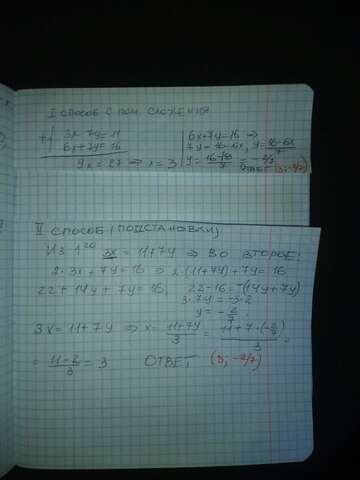 I СПОСОБ С ПОМ. СЛОЖЕНИЯ
+{ 3x-7y=11
6x+7y=16
9x=27 ⇒ x=3
6x+7y=16 ⇒
7y=16-6x, y=(16-6x)/7
y=(16-18)/7=-2/7
ОТВЕТ (3; -2/7)
II СПОСОБ (ПОДСТАНОВКИ)
ИЗ 1го 3x=11+7y ⇒ ВО ВТОРОЕ:
2·3x+7y=16 ⇒ 2·(11+7y)+7y=16
22+14y+7y=16, 22-16=-(14y+7y)
3·7y=-3·2
y=-2/7
3x=11+7y ⇒ x=(11+7y)/3=(11+7·(-2/7))/3=
=(11-2)/3=3 ОТВЕТ (3; -2/7)